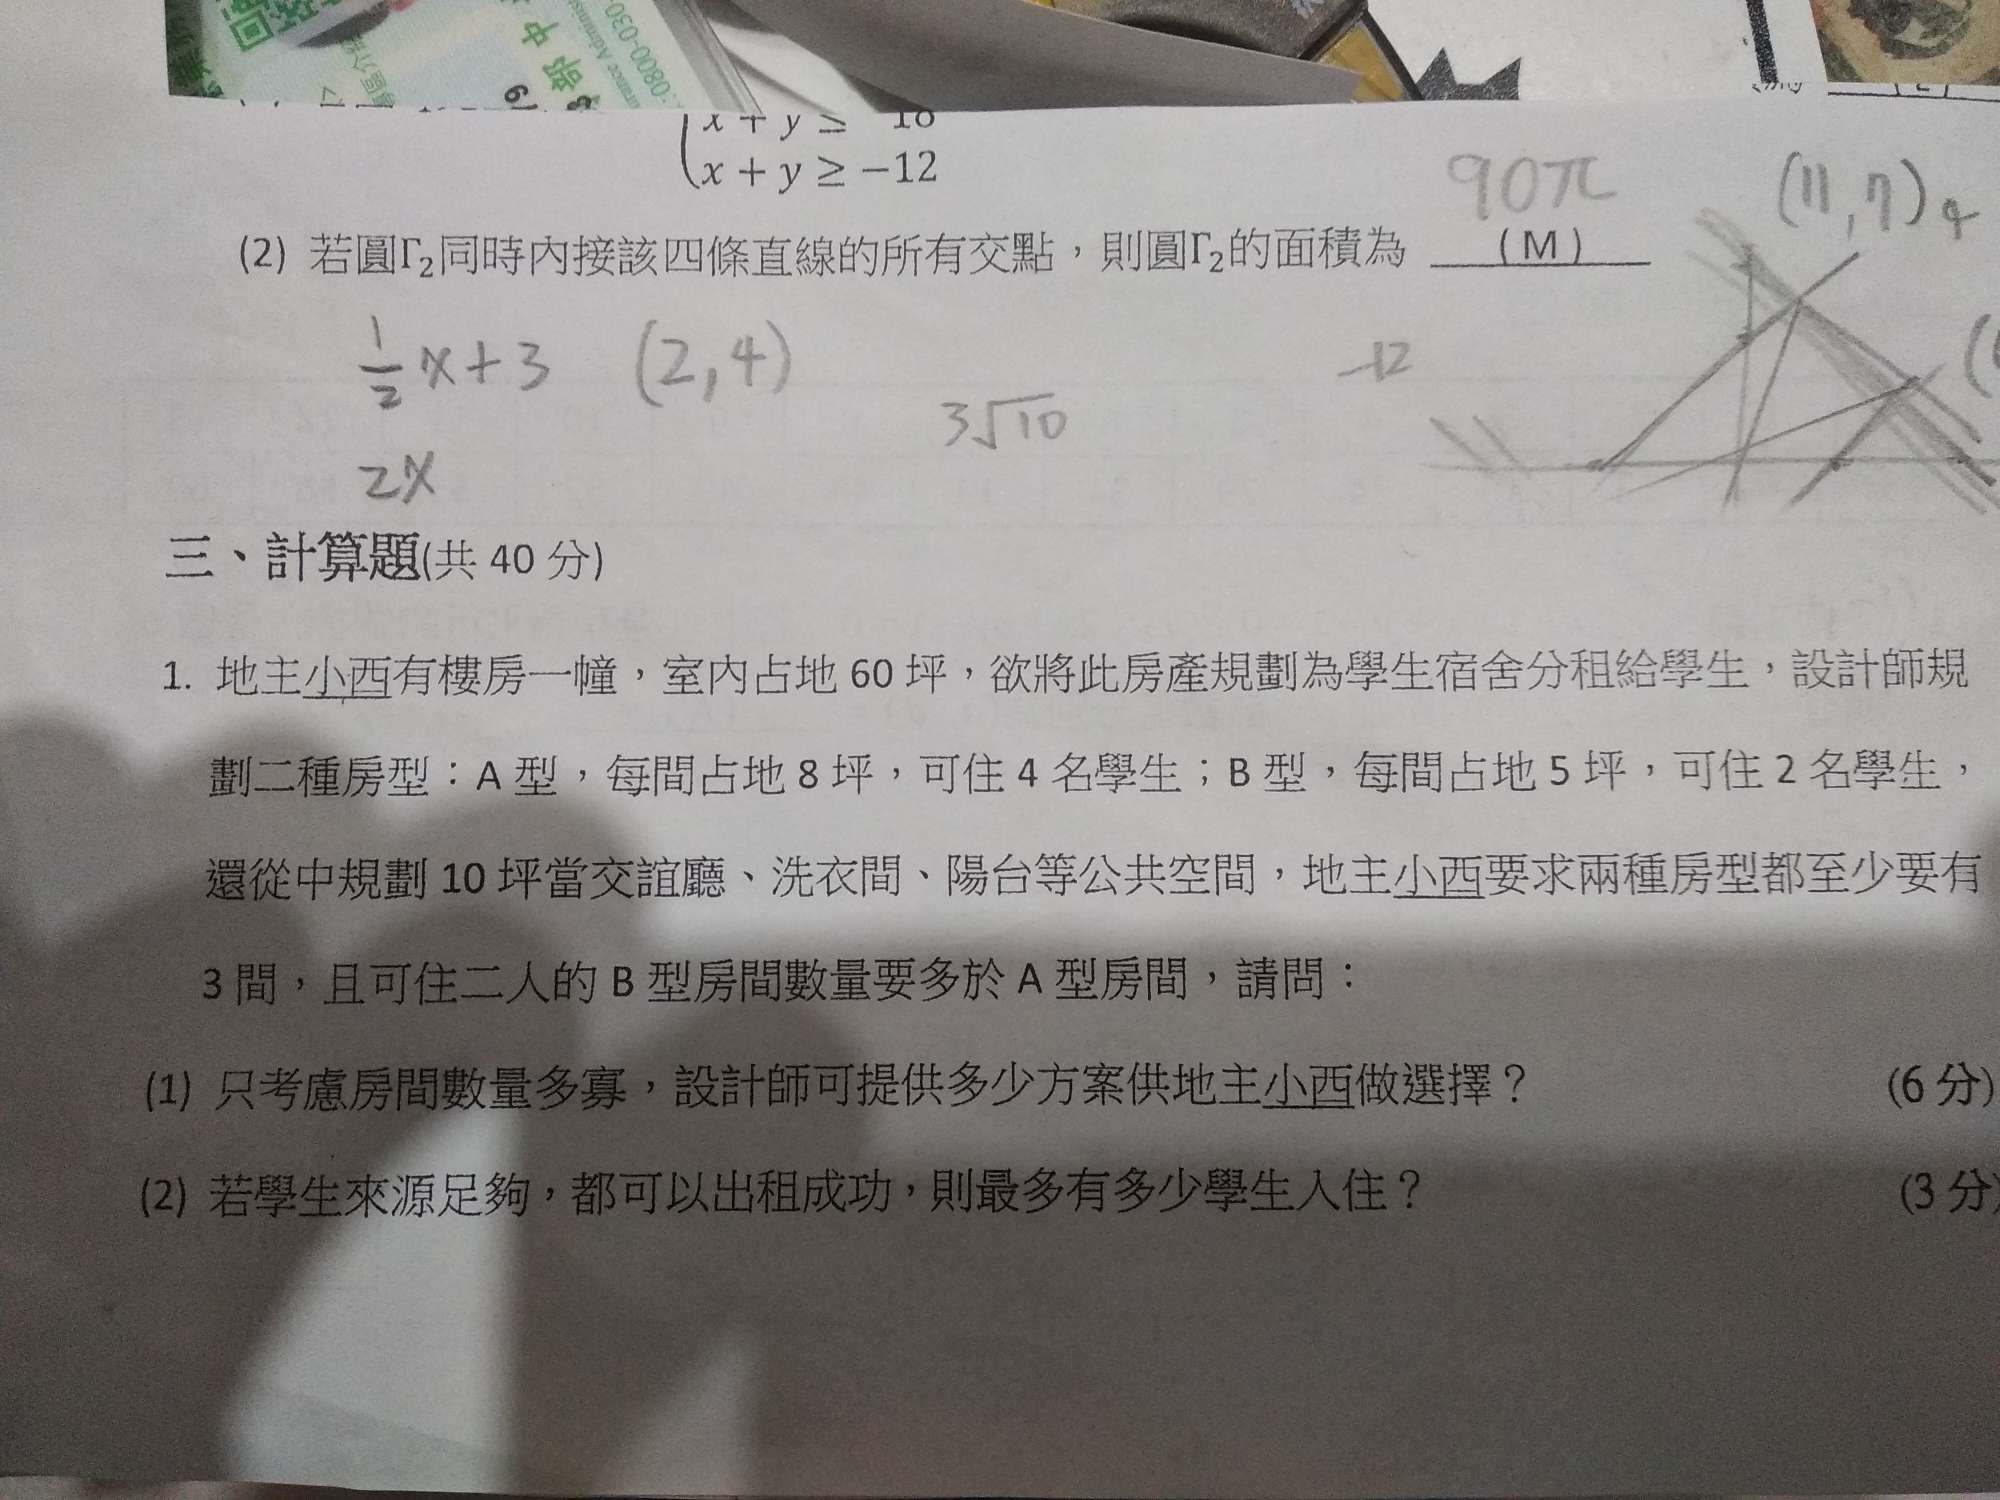 0800-030-
中
部
x + y ≤ 18
x + y ≥ −12
90π
(11,7)
(2) 若圓Γ₂同時內接該四條直線的所有交點，則圓Γ₂的面積為 (M)
½x+3 (2,4)
-12
3√10
2x
三、計算題(共 40 分)
1. 地主小西有樓房一幢，室內占地 60 坪，欲將此房產規劃為學生宿舍分租給學生，設計師規
劃二種房型：A 型，每間占地 8 坪，可住 4 名學生；B 型，每間占地 5 坪，可住 2 名學生，
還從中規劃 10 坪當交誼廳、洗衣間、陽台等公共空間，地主小西要求兩種房型都至少要有
3 間，且可住二人的 B 型房間數量要多於 A 型房間，請問：
(1) 只考慮房間數量多寡，設計師可提供多少方案供地主小西做選擇？ (6 分)
(2) 若學生來源足夠，都可以出租成功，則最多有多少學生入住？ (3 分)